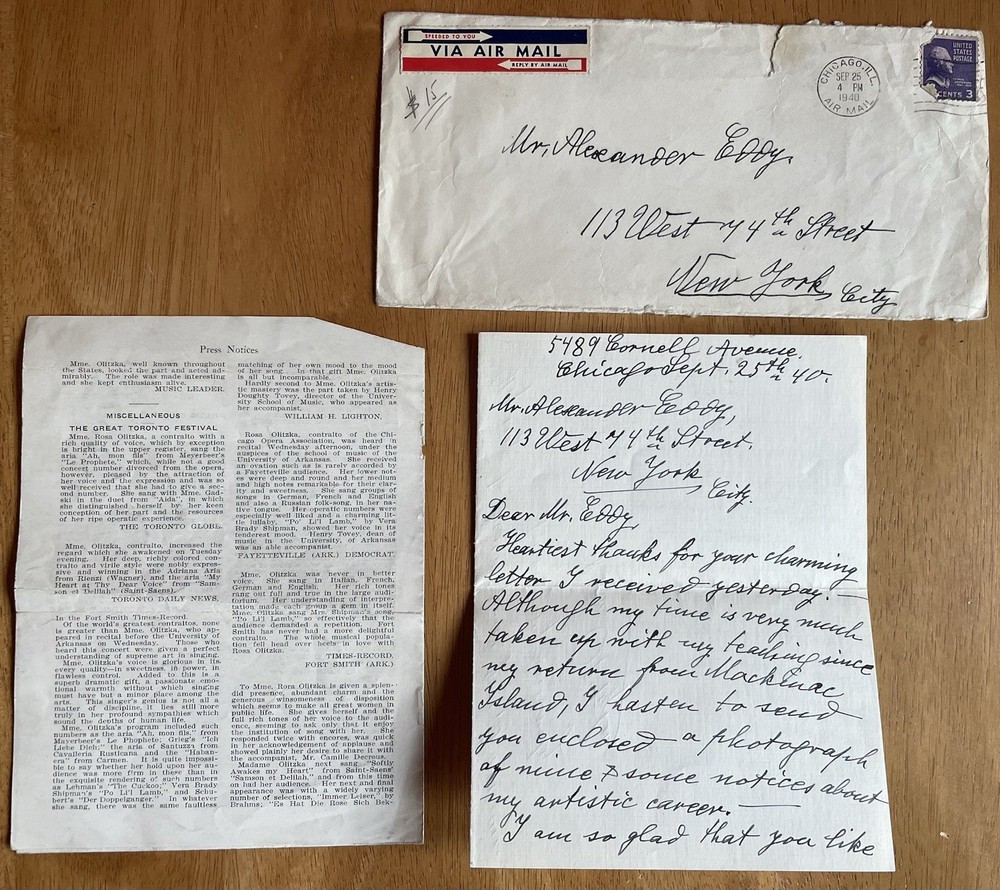 SPEEDED TO YOU
VIA AIR MAIL
REPLY BY AIR MAIL
$15
CHICAGO, ILL.
SEP 25
4 PM
1940
AIR MAIL
UNITED
STATES
POSTAGE
CENTS 3
Mr. Alexander Eddy,
113 West 74th Street
New York, City
Press Notices
Mme. Olitzka, well known throughout
the States, looked the part and acted ad-
mirably. The role was made interesting
and she kept enthusiasm alive.
MUSIC LEADER.
MISCELLANEOUS
THE GREAT TORONTO FESTIVAL
Mme. Rosa Olitzka, a contralto with a
rich quality of voice, which by exception
is bright in the upper register, sang the
aria "Ah, mon fils" from Meyerbeer's
"Le Prophete," which, while not a good
concert number divorced from the opera,
however, pleased by the attraction of
her voice and the expression and was so
well received that she had to give a sec-
ond number. She sang with Mme. Gad-
ski in the duet from "Aida", in which
she distinguished herself by her keen
conception of her part and the resources
of her ripe operatic experience.
THE TORONTO GLOBE.
Mme. Olitzka, contralto, increased the
regard which she awakened on Tuesday
evening. Her deep, richly colored con-
tralto and virile style were nobly expres-
sive and winning in the Adriana Aria
from Rienzi (Wagner), and the aria "My
Heart at Thy Dear Voice" from "Sam-
son et Delilah" (Saint-Saens).
TORONTO DAILY NEWS.
In the Fort Smith Times-Record.
Of the world's greatest contraltos, none
is greater than Mme. Olitzka, who ap-
peared in recital before the University of
Arkansas on Wednesday. Those who
heard this concert were given a perfect
understanding of supreme art in singing.
Mme. Olitzka's voice is glorious in its
every quality—in sweetness, in power, in
flawless control. Added to this is a
superb dramatic gift, a passionate emo-
tional warmth without which singing
must have but a minor place among the
arts. This singer's genius is not all a
matter of discipline, it lies still more
truly in her profound sympathies which
sound the depths of human life.
Mme. Olitzka's program included such
numbers as the aria "Ah, mon fils," from
Mayerbeer's Le Prophete; Grieg's "Ich
Liebe Dich;" the aria of Santuzza from
Cavalleria Rusticana, and the "Haban-
era" from Carmen. It is quite impossi-
ble to say whether her hold upon her au-
dience was more firm in these than in
the exquisite rendering of such numbers
as Lehman's "The Cuckoo," Vera Brady
Shipman's "Po Li'l Lamb," and Schu-
bert's "Der Doppelganger." In whatever
she sang, there was the same faultless
matching of her own mood to the mood
of her song. In that gift Mme. Olitzka
is all but incomparable.
Hardly second to Mme. Olitzka's artis-
tic mastery was the part taken by Henry
Doughty Tovey, director of the Univer-
sity School of Music, who appeared as
her accompanist.
WILLIAM H. LIGHTON.
Rosa Olitzka, contralto of the Chi-
cago Opera Association, was heard in
recital Wednesday afternoon, under the
auspices of the school of music of the
University of Arkansas. She received
an ovation such as is rarely accorded by
a Fayetteville audience. Her lower not-
es were deep and round and her medium
and high notes remarkable for their clar-
ity and sweetness. She sang groups of
songs in German, French and English
and also a Russian folk-song, in her na-
tive tongue. Her operatic numbers were
especially well liked and a charming lit-
tle lullaby, "Po' Li'l Lamb," by Vera
Brady Shipman, showed her voice in its
tenderest mood. Henry Tovey, dean of
music in the University, of Arkansas
was an able accompanist.
FAYETTEVILLE (ARK.) DEMOCRAT.
Mme. Olitzka was never in better
voice. She sang in Italian, French,
German and English. Her rich tones
rang out full and true in the large audi-
torium. Her understanding of interpre-
tation made each group a gem in itself.
Mme. Olitzka sang Mrs. Shipman's song,
"Po Li'l Lamb," so effectively that the
audience demanded a repetition. Fort
Smith has never had a more delightful
contralto. The whole musical popula-
tion fell head over heels in love with
Rosa Olitzka.
TIMES-RECORD,
FORT SMITH (ARK.)
To Mme. Rora Olitzka is given a splen-
did presence, abundant charm and the
generous winsomeness of disposition
which seems to make all great women in
public life. She gives herself and the
full rich tones of her voice to the audi-
ence, seeming to ask only that it enjoy
the institution of song with her. She
responded twice with encores, was quick
in her acknowledgment of applause and
showed plainly her desire to share it with
the accompanist, Mr. Camille Decreus.
Madame Olitzka next sang "Softly
Awakes my Heart" from Saint-Saens'
"Samson et Delilah," and from this time
on had her audience. Her next and final
appearance was with a widely varying
number of selections, "Immer Leiser," by
Brahms; "Es Hat Die Rose Sich Bek-
5489 Cornell Avenue,
Chicago Sept. 25th 40.
Mr. Alexander Eddy,
113 West 74th Street,
New York
City.
Dear Mr. Eddy,
Heartiest thanks for your charming
letter I received yesterday! —
Although my time is very much
taken up with my teaching since
my return from Mackinac
Island, I hasten to send
you enclosed a photograph
of mine & some notices about
my artistic career. —
I am so glad that you like